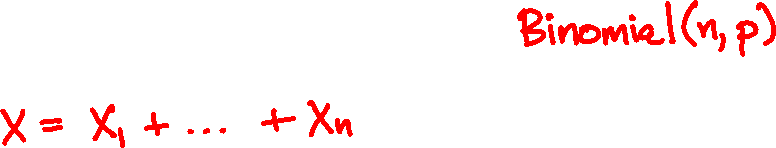 Binomial(n, p)
X = X₁ + ... + Xn